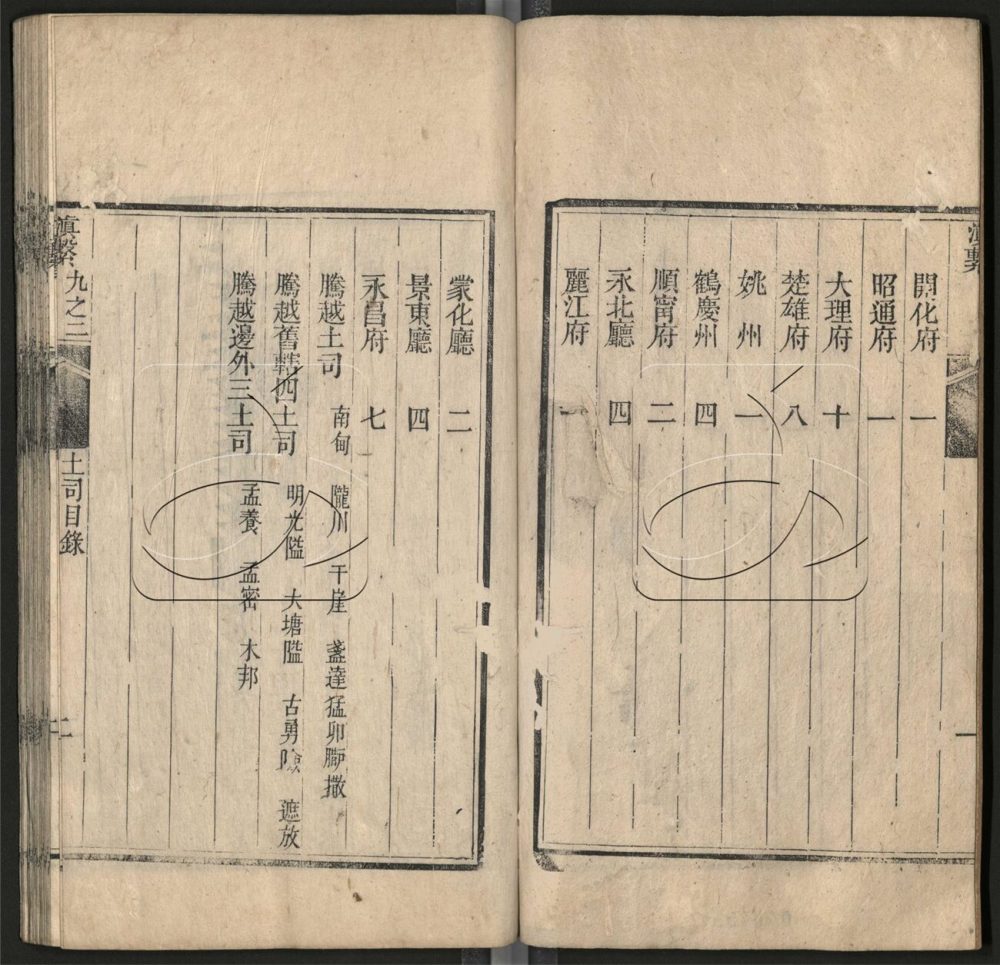 滇繫
一
開化府 一
昭通府 一
大理府 十
楚雄府 八
姚州 一
鶴慶州 四
順甯府 二
永北廳 四
麗江府 一
蒙化廳 二
景東廳 四
永昌府 七
騰越土司 南甸 隴川 干崖 盞達 猛卯 臈撒
騰越舊轄四土司 明光隘 大塘隘 古勇隘 遮放
騰越邊外三土司 孟養 孟密 木邦
滇繫 九之二 土司目錄 二